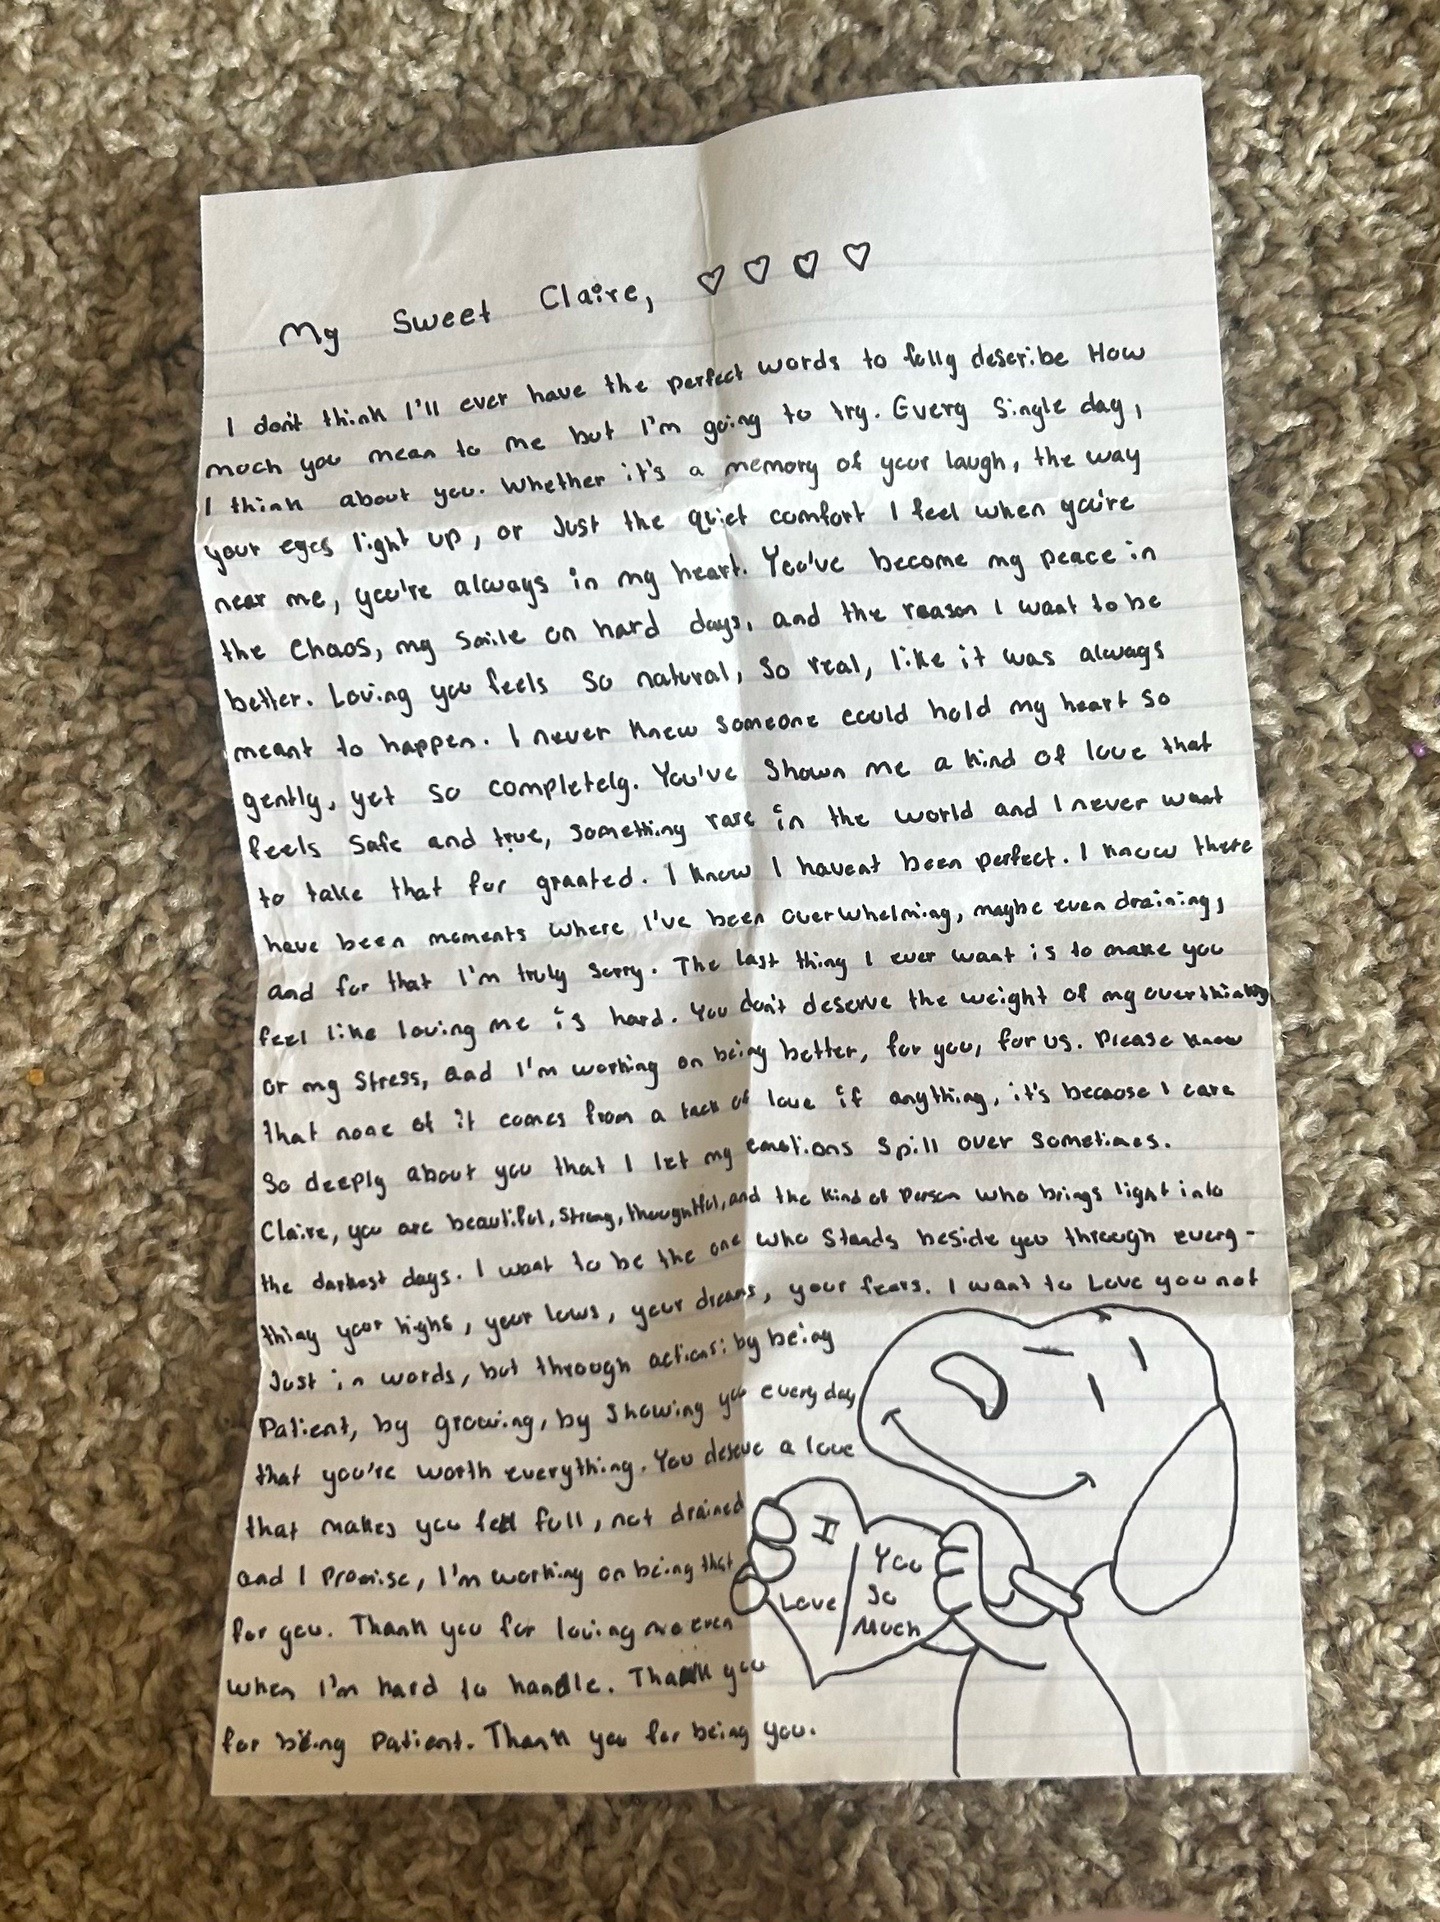 My Sweet Claire, ♡ ♡ ♡ ♡
I don't think I'll ever have the perfect words to fully describe How
much you mean to me but I'm going to try. Every Single day,
I think about you. Whether it's a memory of your laugh, the way
your eyes light up, or Just the quiet comfort I feel when you're
near me, you're always in my heart. You've become my peace in
the Chaos, my Smile on hard days, and the reason I want to be
better. Loving you feels So natural, So real, like it was always
meant to happen. I never Knew someone could hold my heart so
gently, yet so completely. You've Shown me a Kind of love that
feels Safe and true, Something rare in the world and I never want
to take that for granted. I Know I havent been perfect. I Know there
have been moments where I've been overwhelming, maybe even draining,
and for that I'm truly Sorry. The last thing I ever want is to make you
feel like loving me is hard. You don't deserve the weight of my overthinking
or my Stress, and I'm working on being better, for you, for us. Please Know
that none of it comes from a lack of love if anything, it's because I care
So deeply about you that I let my emotions Spill over Sometimes.
Claire, you are beautiful, Strong, thoughtful, and the Kind of Person who brings light into
the darkest days. I want to be the one who Stands beside you through every-
thing your highs, your lows, your dreams, your fears. I want to Love you not
Just in words, but through actions: by being
Patient, by growing, by Showing you every day
that you're worth everything. You deserve a love
that makes you feel full, not drained
and I Promise, I'm working on being that
for you. Thank you for loving me even
when I'm hard to handle. Thank you
for being Patient. Thank you for being you.
I
Love
You
So
Much